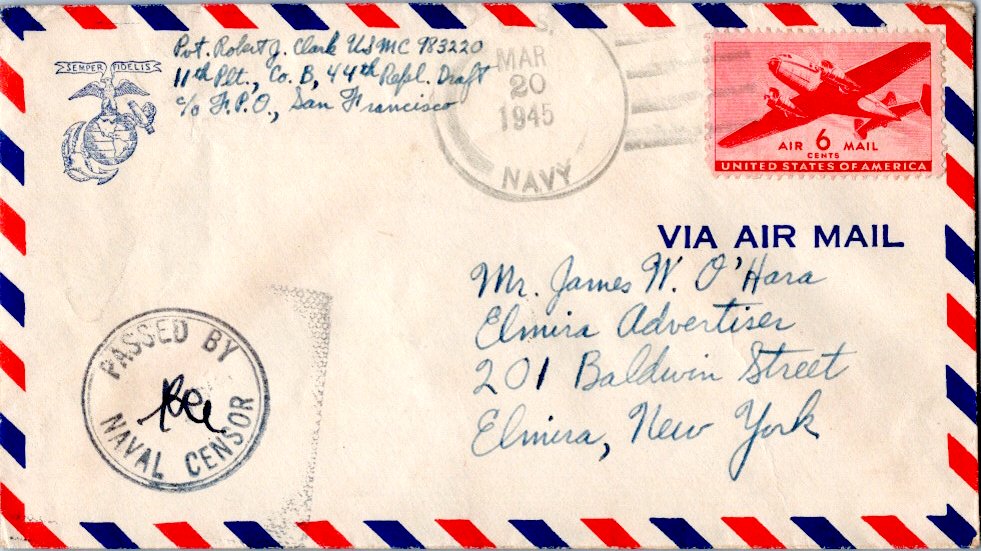 SEMPER FIDELIS
Pvt. Robert J. Clark USMC 983220
11th Plt., Co. B, 44th Repl. Draft
c/o F.P.O., San Francisco
MAR
20
1945
NAVY
AIR 6 MAIL
CENTS
UNITED STATES OF AMERICA
VIA AIR MAIL
Mr. James W. O'Hara
Elmira Advertiser
201 Baldwin Street
Elmira, New York
PASSED BY
NAVAL CENSOR